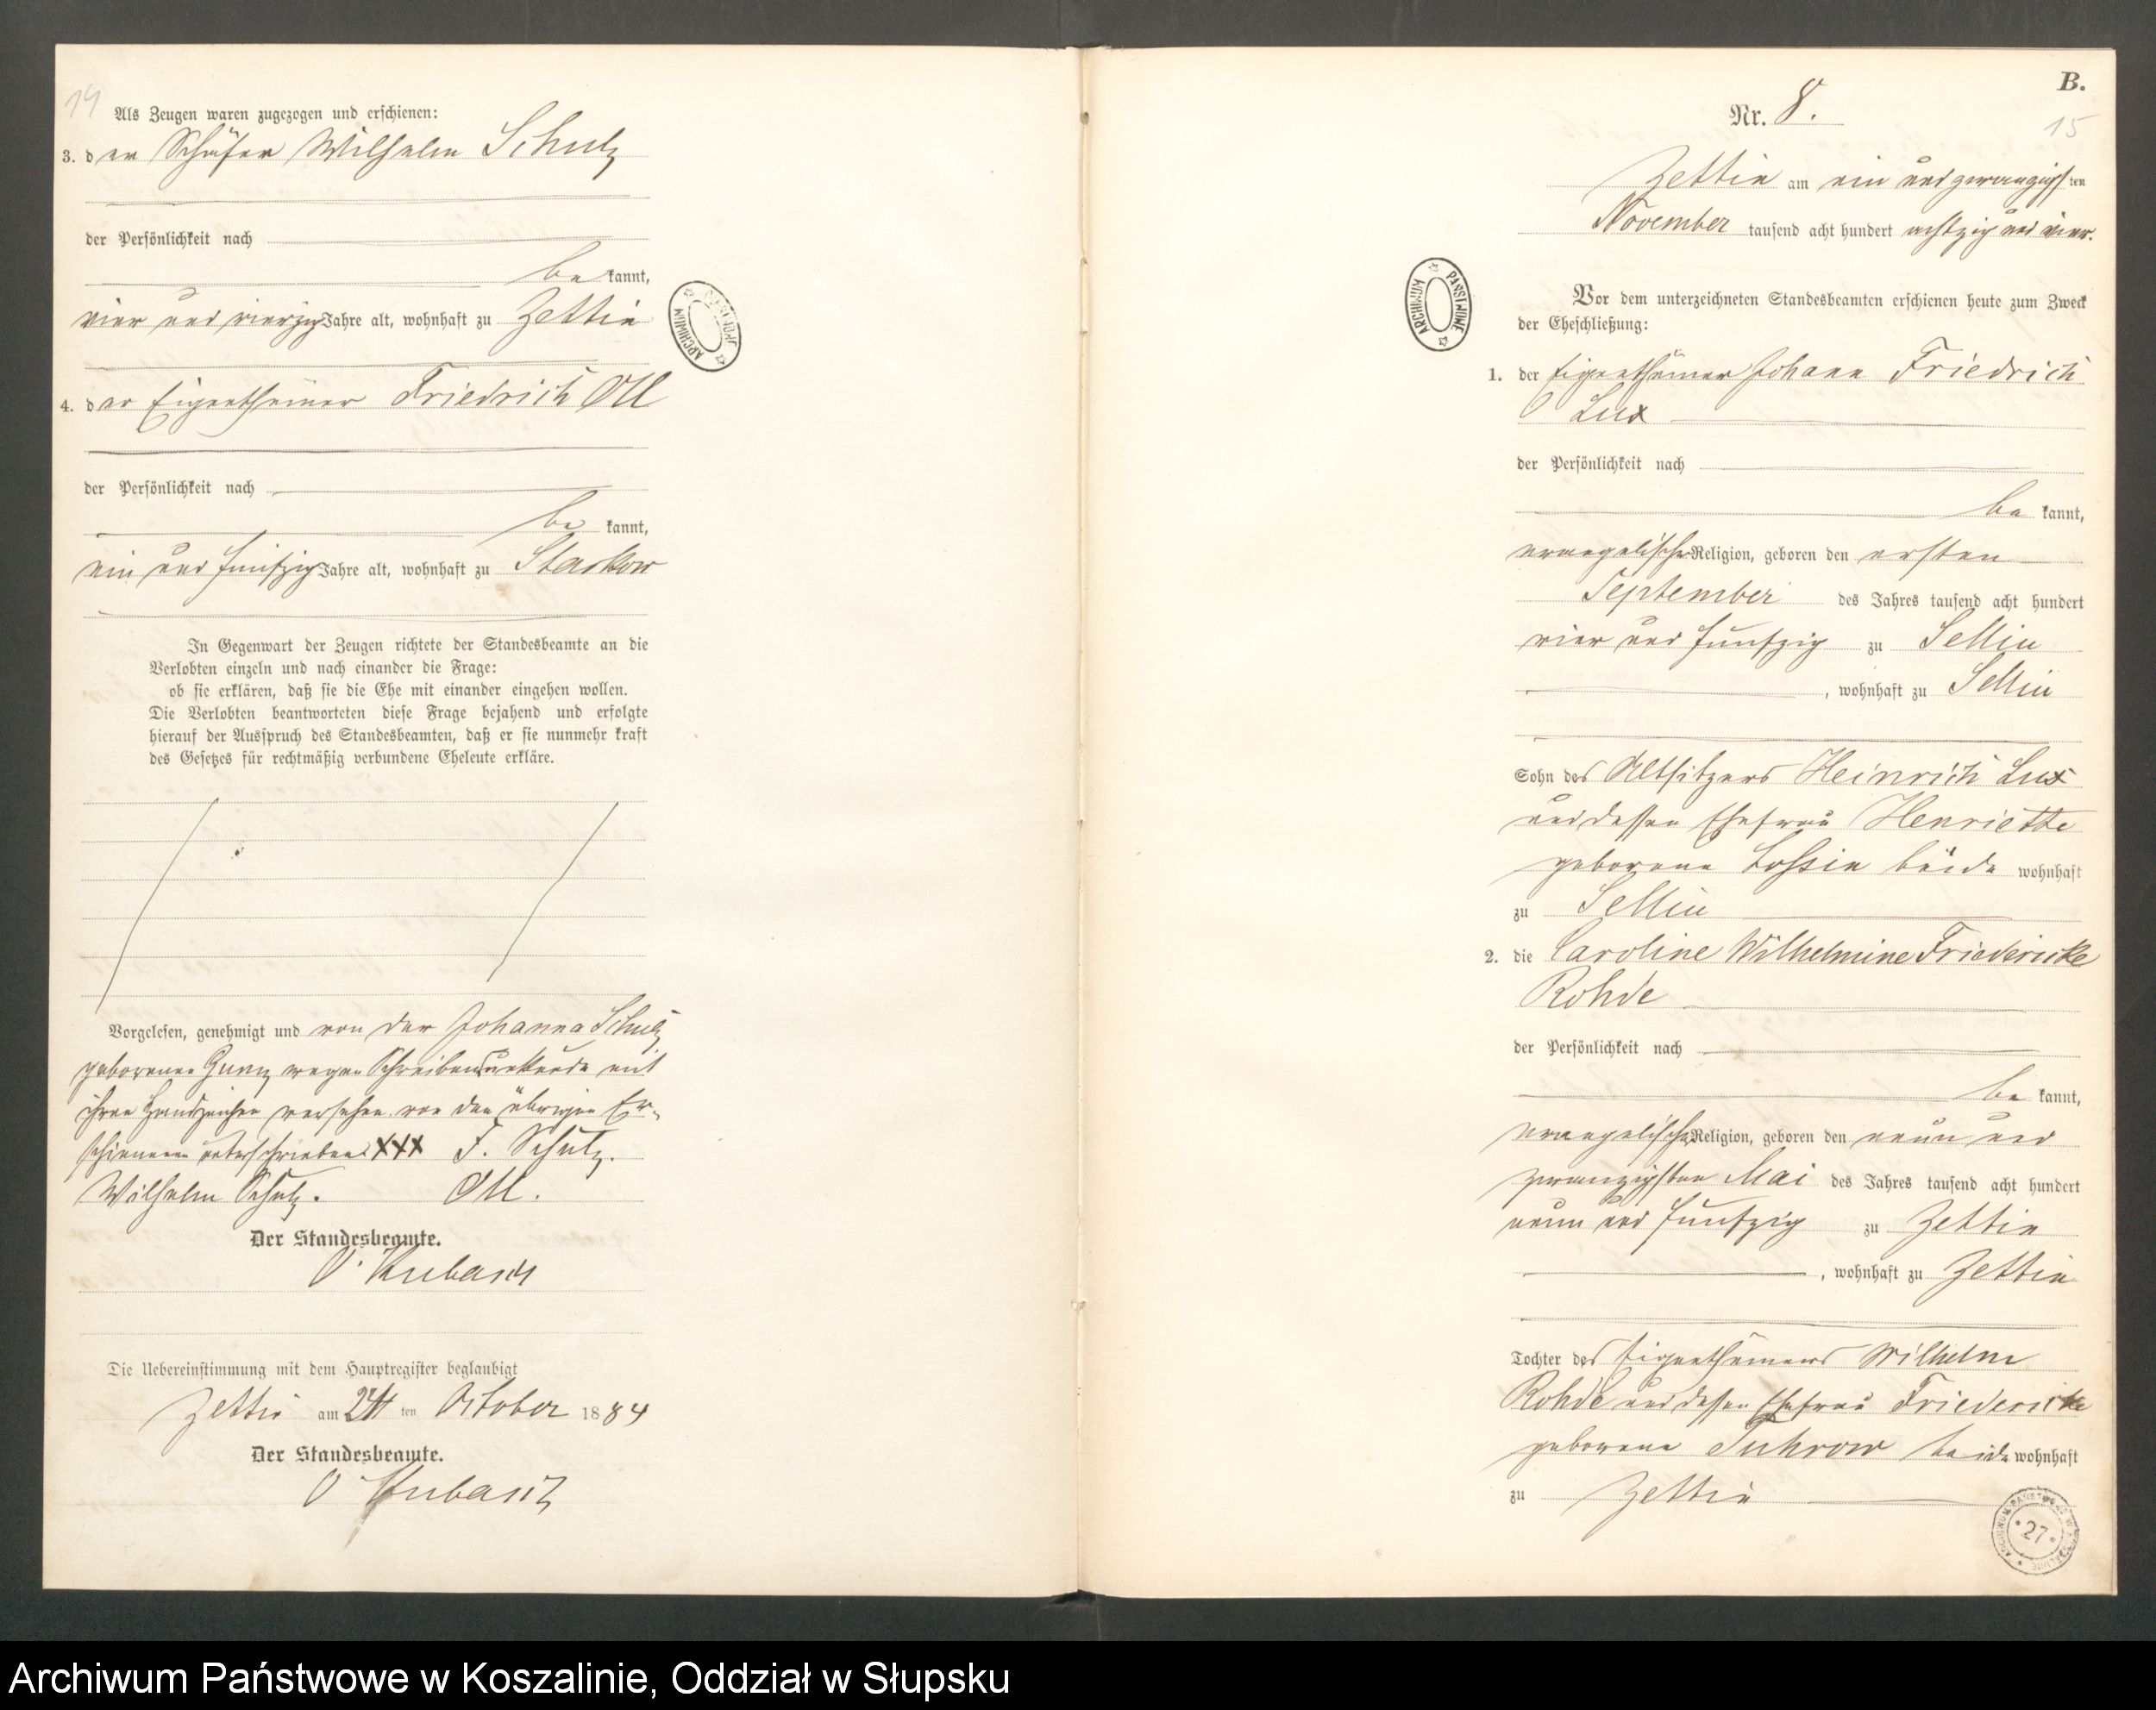 14
Als Zeugen waren zugezogen und erschienen:
3. der Schäfer Wilhelm Schulz
der Persönlichkeit nach
bekannt,
vier und vierzig Jahre alt, wohnhaft zu Zettin
4. der Eigenthümer Friedrich Ott
der Persönlichkeit nach
bekannt,
ein und fünfzig Jahre alt, wohnhaft zu
In Gegenwart der Zeugen richtete der Standesbeamte an die
Verlobten einzeln und nach einander die Frage:
ob sie erklären, daß sie die Ehe mit einander eingehen wollen.
Die Verlobten beantworteten diese Frage bejahend und erfolgte
hierauf der Ausspruch des Standesbeamten, daß er sie nunmehr kraft
des Gesetzes für rechtmäßig verbundene Eheleute erkläre.
Vorgelesen, genehmigt und von der Johanna Schulz
geborenen wegen Schreibensunkunde mit
ihren Handzeichen versehen von den übrigen Er-
schienenen unterschrieben XXX F. Schulz.
Wilhelm Schulz. Ott.
Der Standesbeamte.
Kubasch
Die Uebereinstimmung mit dem Hauptregister beglaubigt
Zettin am 24ten October 1884
Der Standesbeamte.
Kubasch
ARCHIWUM PAŃSTWOWE
B.
Nr. 8.
15
Zettin am ein und zwanzigsten
November tausend acht hundert achtzig und vier.
ARCHIWUM PAŃSTWOWE
Vor dem unterzeichneten Standesbeamten erschienen heute zum Zweck
der Eheschließung:
1. der Eigenthümer Johann Friedrich
Lux
der Persönlichkeit nach
bekannt,
evangelischer Religion, geboren den ersten
September des Jahres tausend acht hundert
vier und fünfzig zu Sellin
, wohnhaft zu Sellin
Sohn des Altsitzers Heinrich Lux
und dessen Ehefrau Henriette
geborene Lossin beide wohnhaft
zu Sellin
2. die Caroline Wilhelmine Friedericke
Rohde
der Persönlichkeit nach
bekannt,
evangelischer Religion, geboren den neun und
zwanzigsten Mai des Jahres tausend acht hundert
neun und fünfzig zu Zettin
, wohnhaft zu Zettin
Tochter des Eigenthümers Wilhelm
Rohde und dessen Ehefrau Friedericke
geborene Tuhrow beide wohnhaft
zu Zettin
27
Archiwum Państwowe w Koszalinie, Oddział w Słupsku